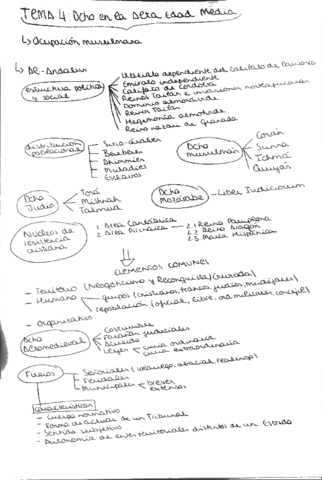 TEMA 4 Dcho en la Alta Edad Media
↳ Ocupación musulmana
↳ Al-Andalus
Estructura política y social
Waliato dependiente del Califato de Damasco
Emirato independiente
Califato de Córdoba
Reinos Taifas e invasiones norteafricanas
Dominio almorávide
Reinos Taifas
Hegemonía almohade
Reino nazarí de Granada
distribución poblacional
Sirio-árabes
Bereberes
Dhimmíes
Muladíes
Esclavos
Dcho musulmán
Corán
Sunna
Ichmá
Quiyás
Dcho Judío
Torá
Mishnah
Talmud
Dcho Mozárabe
- Liber Iudiciorum
Núcleos de resistencia cristiana
1 Área Cantábrica
2 Área Pirenaica
2.1 Reino Pamplona
2.2 Reino Aragón
2.3 Marca Hispánica
ELEMENTOS COMUNES
- Territorio (Neogoticismo y Reconquista) (cruzada)
- Humano
grupos (cristianos, francos, judíos, mudéjares)
repoblación (oficial, libre, ord. militares, concejil)
- Organizativo
Dcho Altomedieval
Costumbre
Fazañas judiciales
Acuerdo
Leyes
curia ordinaria
curia extraordinaria
Fueros
Señoriales (solariego, abacial, realengo)
Feudales
Municipales
breves
extensos
Características
- Cuerpo normativo
- Forma de actuar de un Tribunal
- Sentido subjetivo
- Autonomía de entes territoriales distintos de un Estado